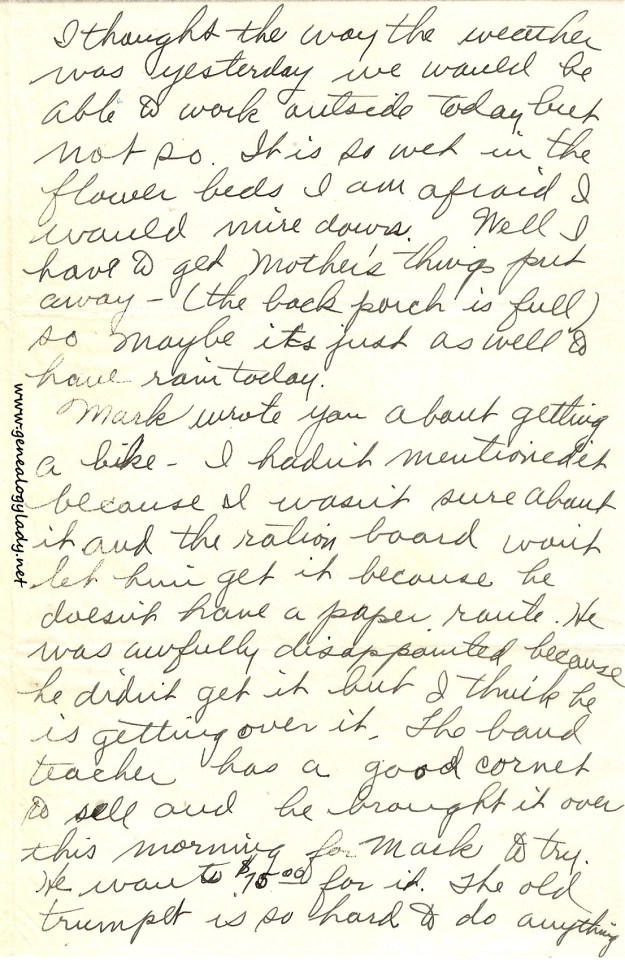 I thought the way the weather
was yesterday we would be
able to work outside today but
not so. It is so wet in the
flower beds I am afraid I
would mire down. Well I
have to get Mother's things put
away - (the back porch is full)
so maybe its just as well to
have rain today.
Mark wrote you about getting
a bike - I hadn't mentioned it
because I wasn't sure about
it and the ration board won't
let him get it because he
doesn't have a paper route. He
was awfully disappointed because
he didn't get it but I think he
is getting over it. The band
teacher has a good cornet
to sell and he brought it over
this morning for Mark to try.
He wants $75.00 for it. The old
trumpet is so hard to do anything
www.genealogylady.net